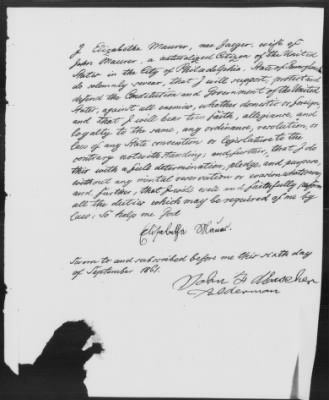 I Elizabetha Maurer, nee Jaeger, wife of
John Maurer, a naturalized Citizen of the United
States in the City of Philadelphia, State of Pennsylvania
do solemnly swear, that I will support, protect and
defend the Constitution and Government of the United
States, against all enemies, whether domestic or foreign,
and that I will bear true faith, allegiance, and
loyalty to the same, any ordinance, resolution, or
law of any State convention or legislature to the
contrary notwithstanding; and further, that I do
this with a full determination, pledge, and purpose,
without any mental reservation or evasion whatsoever,
and further, that I will well and faithfully perform
all the duties which may be required of me by
law; So help me God
Elisabetha Maurer
Sworn to and subscribed before me this sixth day
of September 1861.
John
Alderman